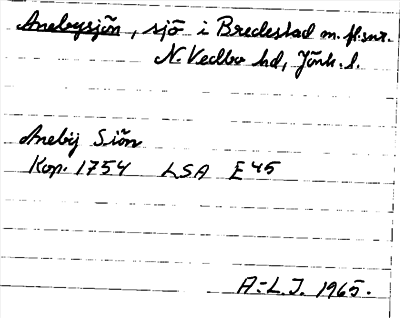 Anebysjön, sjö i Bredestad m. fl. snr.
N. Vedbo hd, Jönk. l.
Anebij Siön
Kop. 1754 LSA E45
A-L.J. 1965.